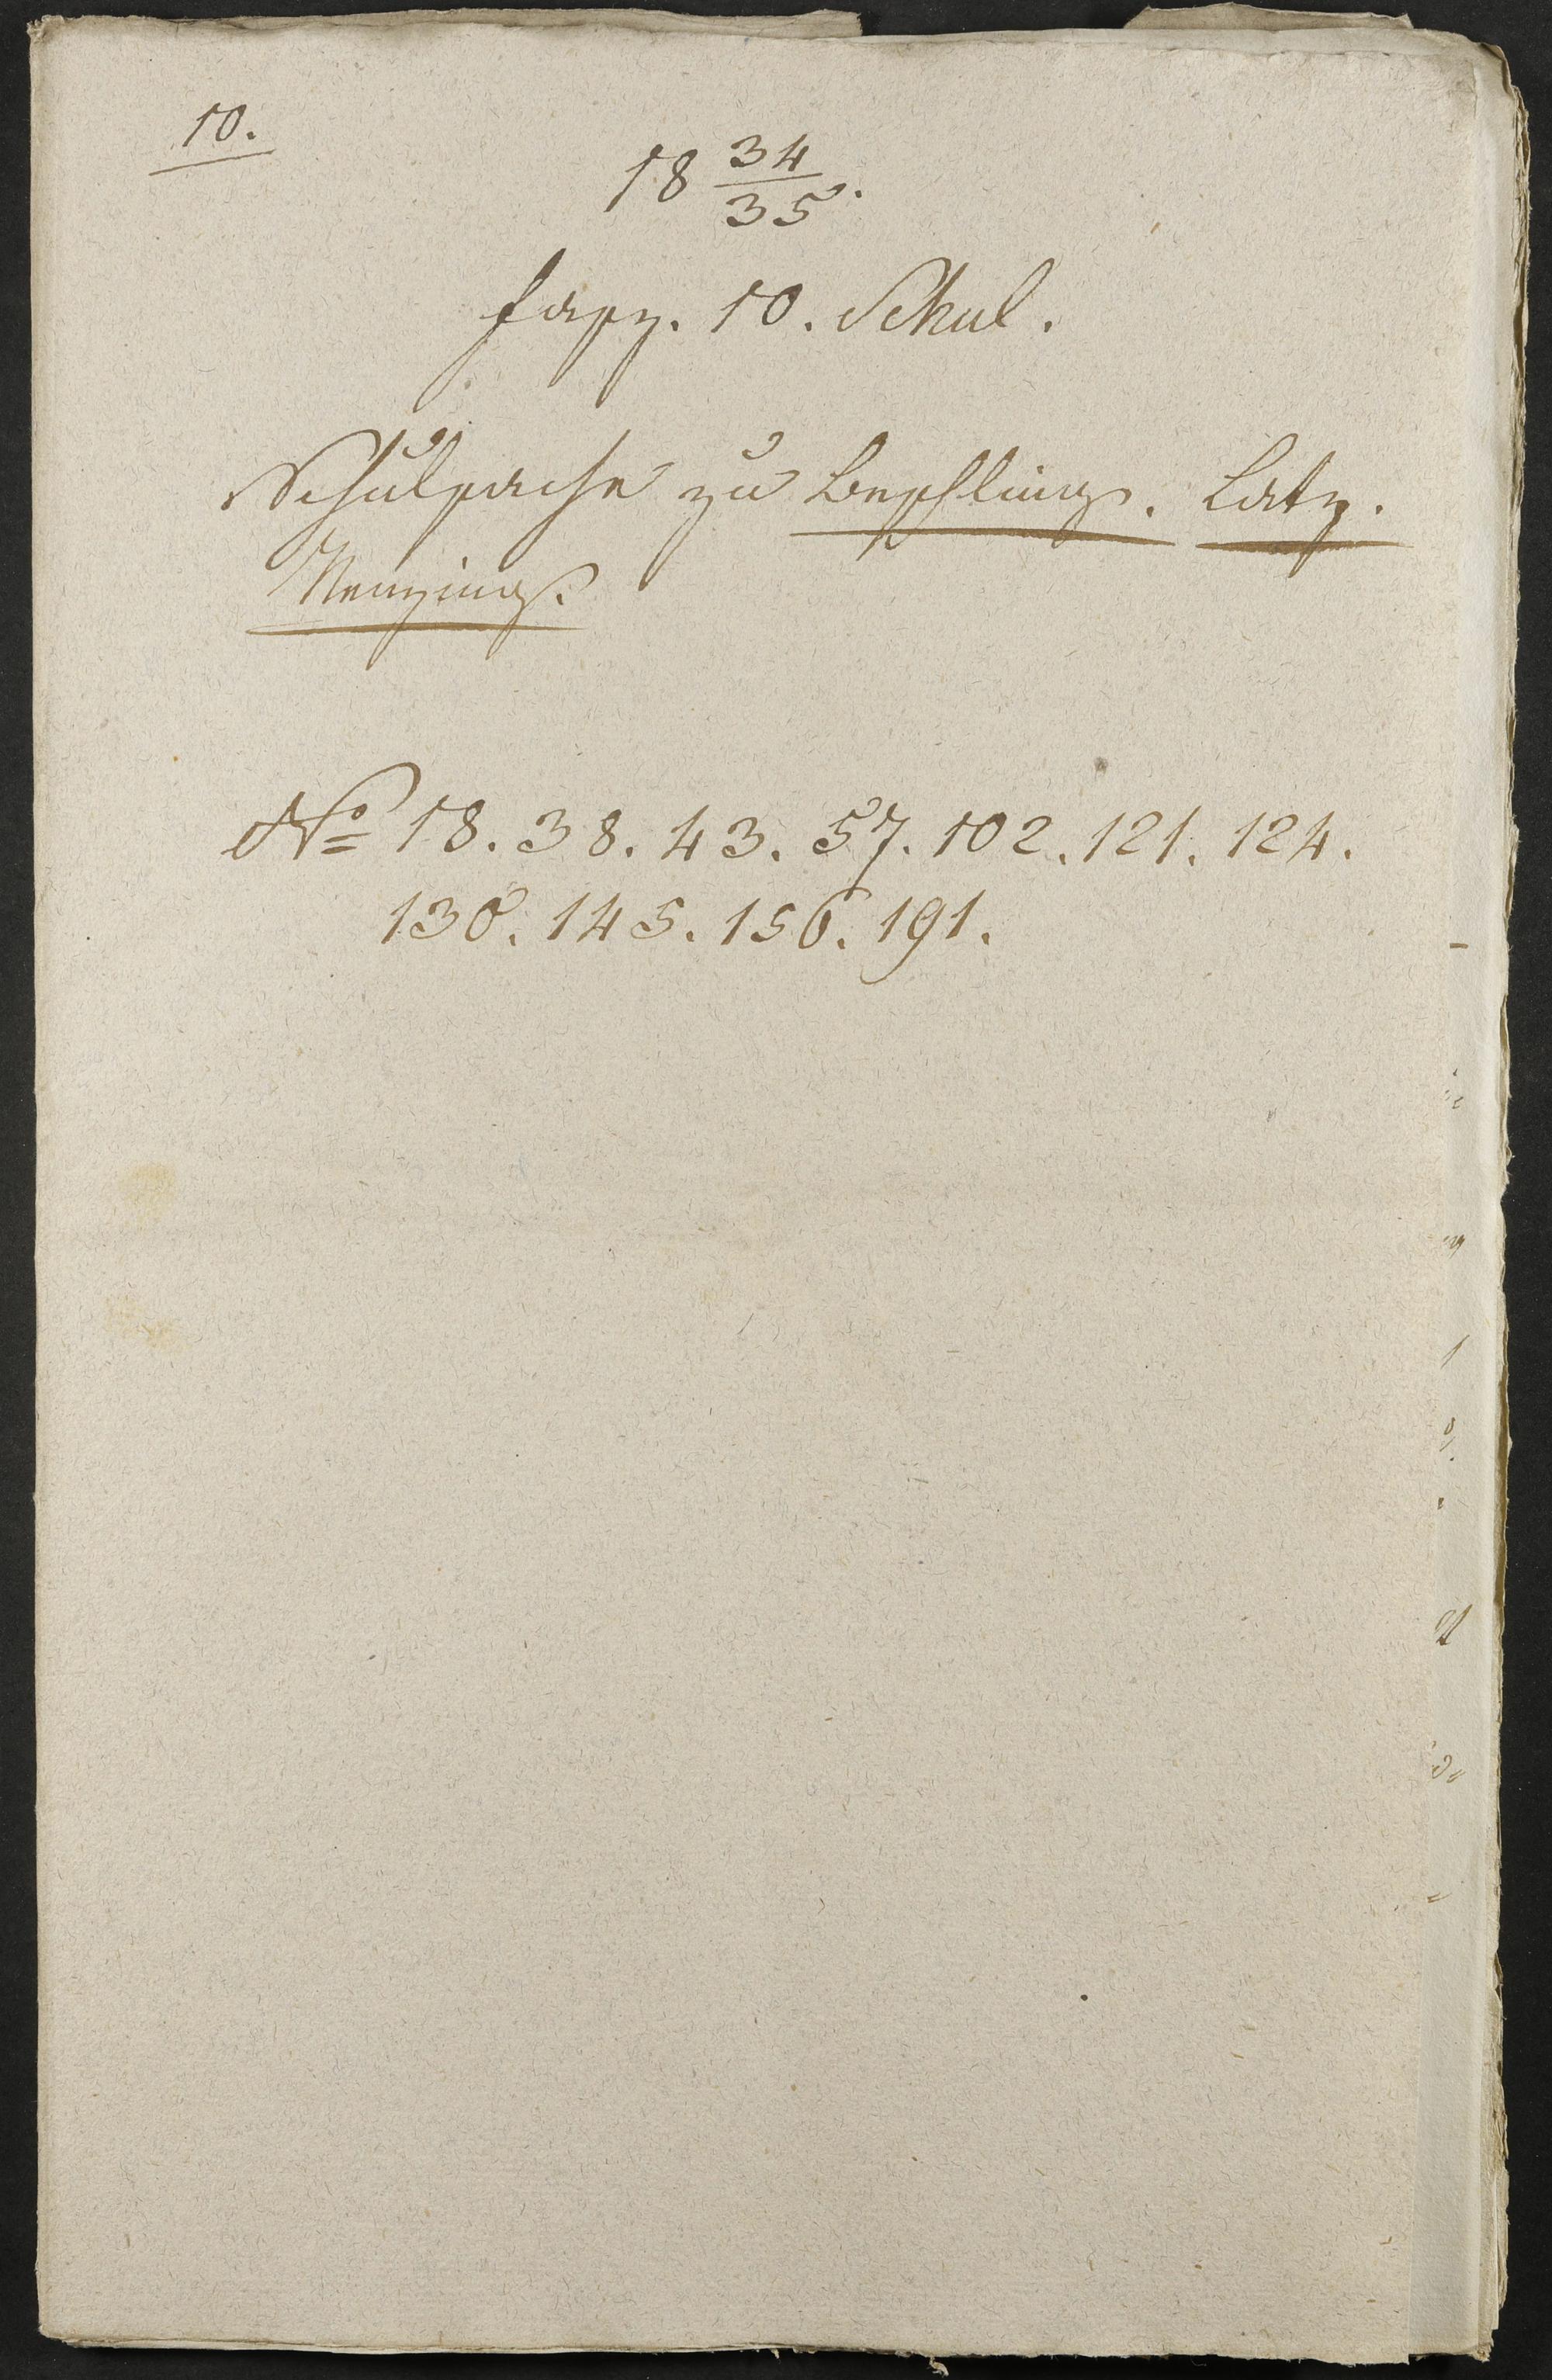 10.
18 34/35.
fasz. 10. Schul.
Schulsache zu Beschling. Latz.
Nenzing.
No 18. 38. 43. 57. 102. 121. 124.
130. 145. 156. 191.